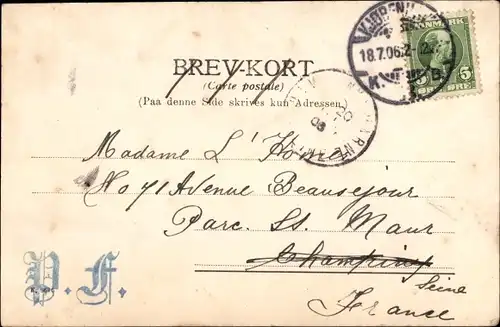 KJØBENH
18.7.06.
K. B.
DANMARK
5 5
ØRE
BREV-KORT
(Carte postale)
(Paa denne Side skrives kun Adressen.)
Madame L'
No 71 Avenue Beausejour
Parc. St. Maur
Champiny
Seine
France
P. F.